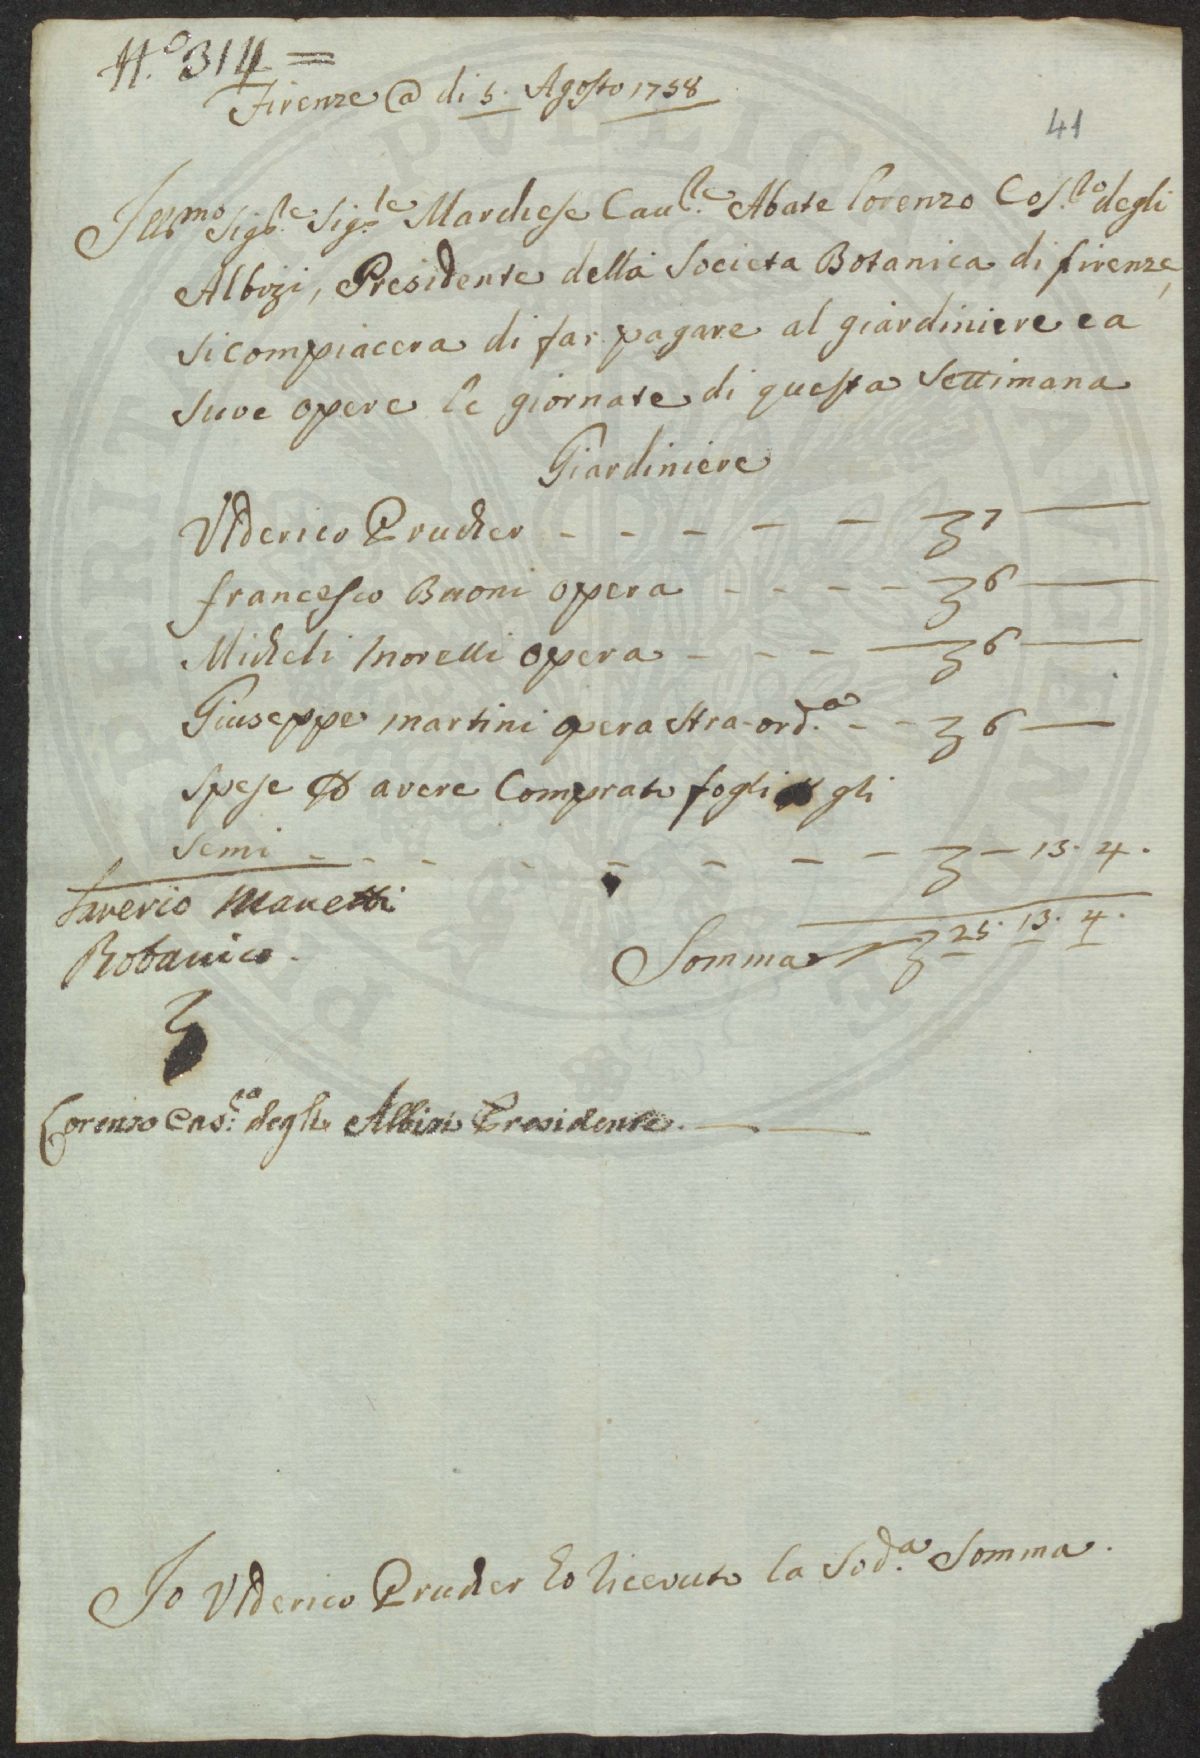 N.º 314 =
Firenze @ di 5. Agosto 1758
41
Illmo Sigre. Sigre. Marchese Caule. Abate Lorenzo Cos.to degli
Albizi, Presidente della Societa Botanica di firenze,
si compiacera di far pagare al giardiniere e a
suoe opere le giornate di questa Settimana
Giardiniere
Ulderico Prucher - - - - - 7 —
francesco Buoni opera - - - - 6 —
Micheli Morelli opera - - - 6 —
Giuseppe Martini opera stra-ord.a - - 6 —
spese p avere Comprato fogli p gli
semi - - - - - - - - 13. 4.
Saverio Manetti
Botanico.
Somma 25. 13. 4.
Lorenzo Cos.to degli Albizi Presidente.
Io Ulderico Prucher ho riceuuto la Sod.a Somma.